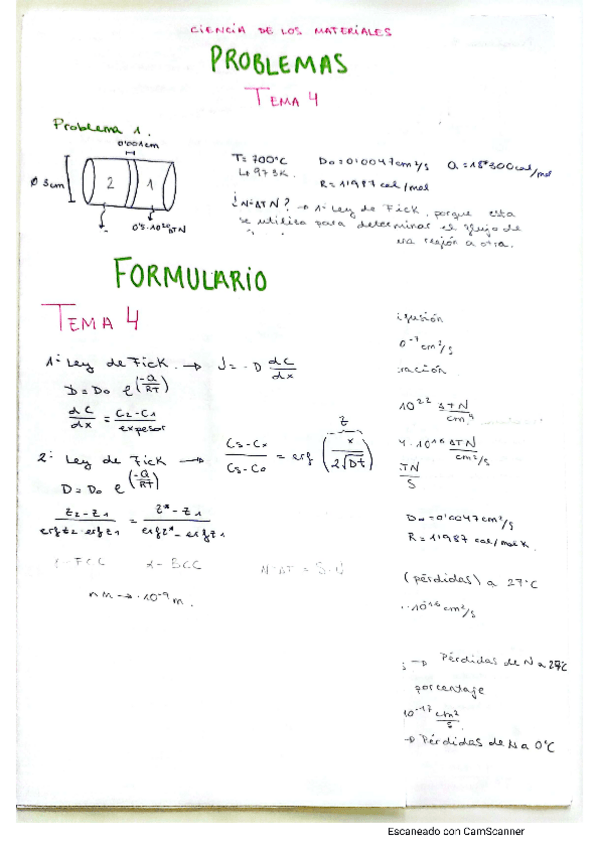 CIENCIA DE LOS MATERIALES
PROBLEMAS
TEMA 4
Problema 1.
0'001cm
Ø 3cm
2
1
0'5·10²⁰ATN
T= 700ºC
↳ 973K.
Do=0'0047cm²/s
Q=18300cal/mol
R=1'987 cal/mol
¿N=ATN? → 1ª Ley de Fick, porque esta
se utiliza para determinar el flujo de
una región a otra.
FORMULARIO
TEMA 4
1ª Ley de Fick → J= -D dC/dx
D=Do e^(-Q/RT)
dC/dx = C2-C1/espesor
2ª Ley de Fick → Cs-Cx/Cs-Co = erf (x/2√Dt)
z
D=Do e^(-Q/RT)
z2-z1/erfz2-erfz1 = z*-z1/erfz*-erfz1
γ-FCC α-BCC N·AT = J·N
nm → ·10⁻⁹m.
usión
0⁻⁷cm²/s
ración
10²² ATN/cm⁴
4·10¹⁶ ATN/cm²/s
TN/s
Do=0'0047cm²/s
R=1'987 cal/mol K.
(pérdidas) a 27ºC
10¹⁶cm²/s
→ Pérdidas de N a 27ºC
porcentaje
10⁻¹⁷ cm²/s
→ Pérdidas de N a 0ºC
Escaneado con CamScanner